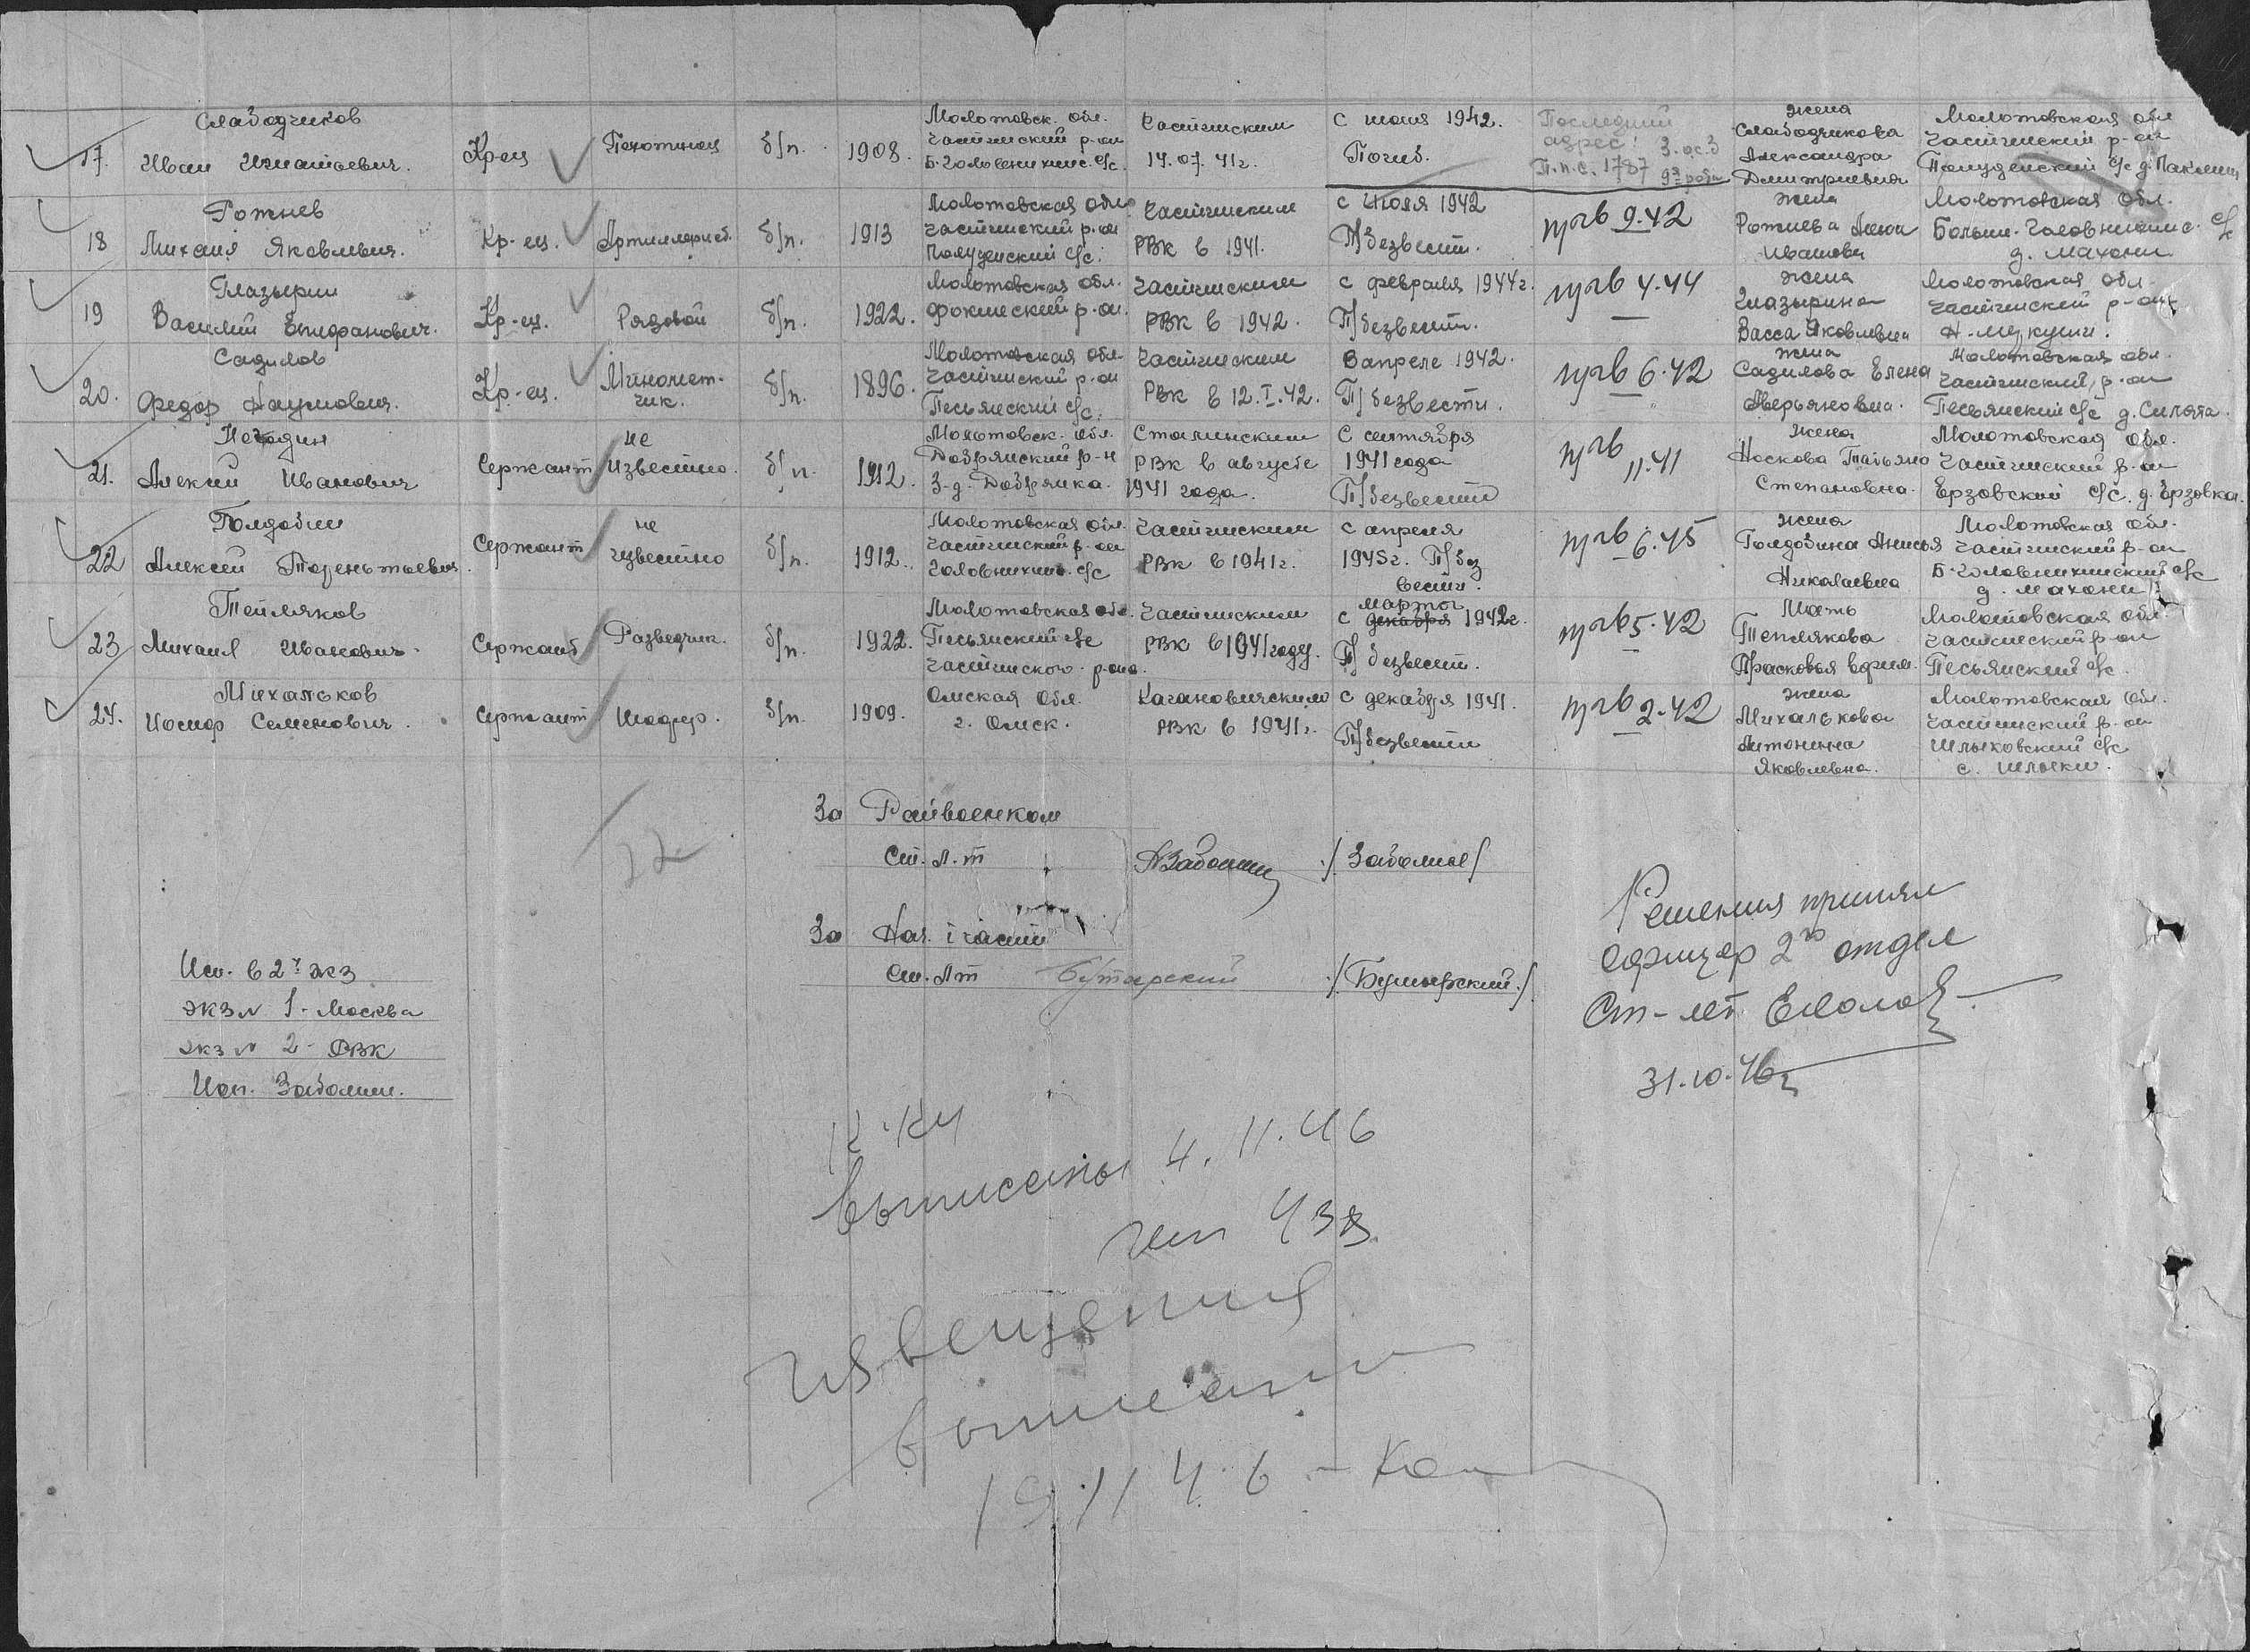 17. Слабодчиков
Иван Игнатьевич. Кр-ец Пехотинец б/п. 1908.
Молотовск. обл.
Частинский р-он
Б-Головнихинс. с/с.
Частинским
14.07.41г.
С июня 1942.
Погиб.
Последний
адрес:
П.п.с. 1787
жена
Слабодчикова
Александра
Дмитриевна
Молотовская обл
Частинский р-он
Полуденский с/с
18 Рожнев
Михаил Яковлевич. Кр-ец. Артиллерист. б/п. 1913
Молотовская обл.
Частинский р-он
Полуденский с/с.
Частинским
РВК в 1941.
с июля 1942
П/безвест.
прб 9.42
жена
Рожнева
Ивановн
Молотовская обл.
Больше-Головнихинс. с/с
д. Махони
19 Глазырин
Василий Епифанович. Кр-ец. Рядовой б/п. 1922.
Молотовская обл.
Фокинский р-он.
Частинским
РВК в 1942.
с февраля 1944г.
П/безвестн.
прб 4.44
жена
Глазырина
Васса Яковлевна
Молотовская обл.
Частинский р-он
20. Садилов
Федор Наумович. Кр-ец. Миномет-
чик. б/п. 1896.
Молотовская обл
Частинский р-он
Песьянский с/с.
Частинским
РВК в 12.I.42.
В апреле 1942.
П/безвести.
прб 6.42
жена
Садилова Елена
Аверьяновна.
Молотовская обл.
Частинский р-он
Песьянский с/с
21. Алексий Иванович Сержант не
известно. б/п. 1912.
Молотовск. обл.
Добрянский р-н
З-д. Добрянка.
Сталинским
РВК в августе
1941 года.
С сентября
1941 года
П/безвести
прб 11.41
жена
Носкова Татьяна
Степановна.
Молотовская обл.
Частинский р-он
Ерзовский с/с. д. Ерзовка.
22 Голдобин
Алексей Терентьевич. Сержант не
известно б/п. 1912.
Молотовская обл.
Частинский р-он
Головнихинс. с/с
Частинским
РВК в 1941г.
с апреля
1945г. П/без
вести.
прб 6.45
жена
Голдобина Анисья
Николаевна
Молотовская обл.
Частинский р-он
Б-Головнихинский с/с
д. Махони
23 Тепляков
Михаил Иванович. Сержант Разведчик. б/п. 1922.
Молотовская обл.
Песьянский с/с
Частинского р-она.
Частинским
РВК в 1941 году.
марта
с декабря 1942г.
П/безвест.
прб 5.42
Мать
Теплякова
Прасковья Ефим.
Молотовская обл.
Частинский р-он
Песьянский с/с.
24. Михальков
Иосиф Семенович. Сержант Шофер. б/п. 1909.
Омская обл.
г. Омск.
Кагановическим
РВК в 1941г.
с декабря 1941.
П/безвести
прб 2.42
жена
Михалькова
Антонина
Яковлевна.
Молотовская обл.
Частинский р-он
Шлыковский с/с
с. Шлыки.
За Райвоенком
Ст. л-т /Заболин/
22
За Нач. 1 части
Ст. Лт Бутырский /Бутырский./
Исп. в 2х экз
экз N 1 - Москва
экз N 2 - РВК
Исп. Заболин.
Решения принял
офицер 2го отдел
Ст-лет
31.10.46г
выписаны 4.11.46
извещения
выписаны
19 11 46 -